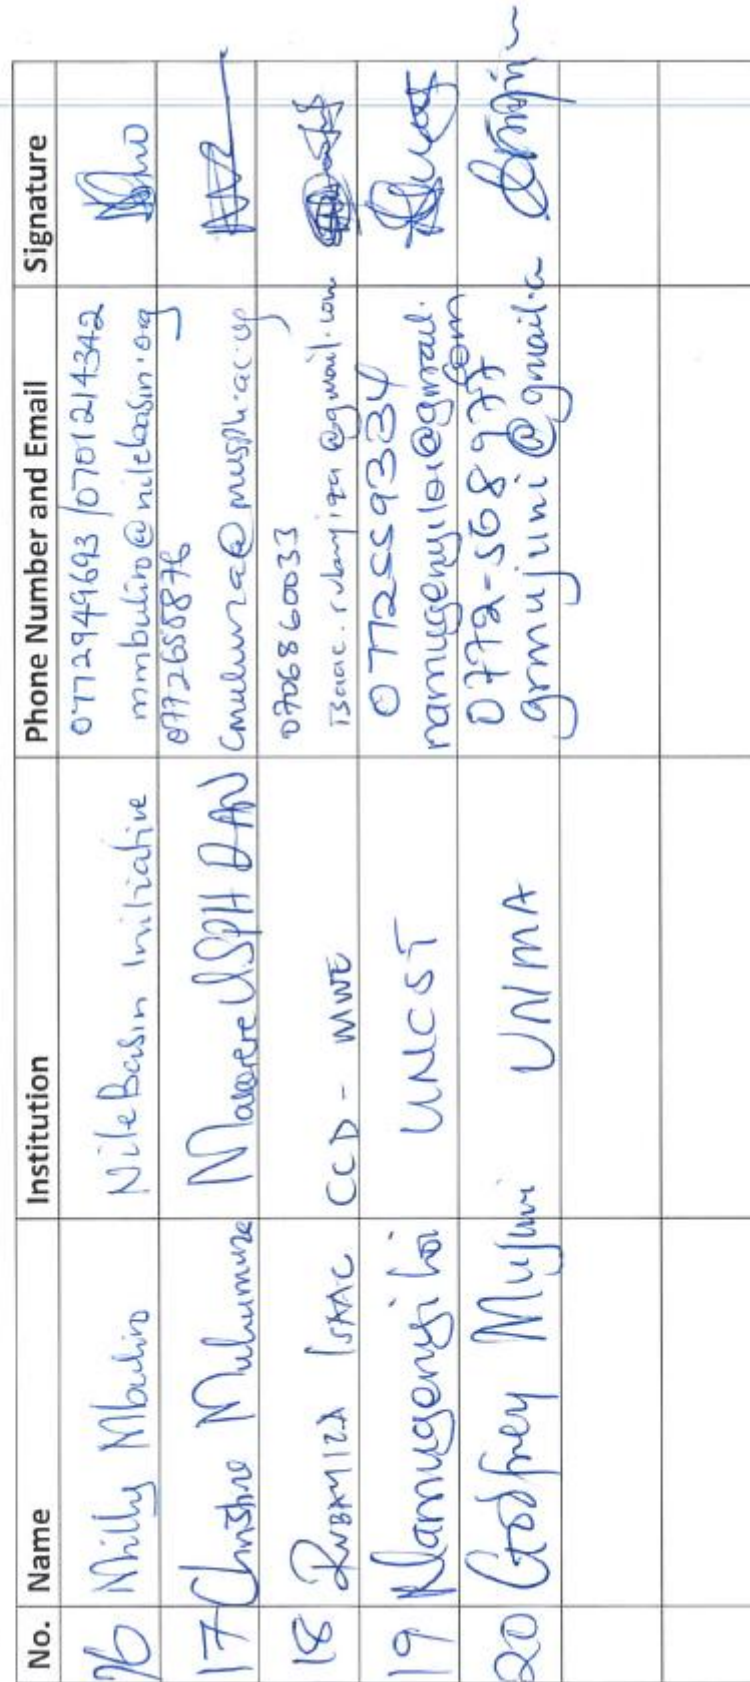 No. Name Institution Phone Number and Email Signature
16 Milly Mbuliro Nile Basin Initiative 0772949693 /0701214342
mmbuliro@nilebasin.org
17 Christine Muhumuza Makerere USPH DAN 0772658876
cmuhumuza@musph.ac.ug
18 RUBAYIZA ISAAC CCD - MWE 0706860033
isaac.rubayiza@gmail.com
19 Namugenyi Loi UNCST 0772559334
namugenyiloi@gmail.
com
20 Godfrey Mujuni UNMA 0772-568977
grmujuni@gmail.c